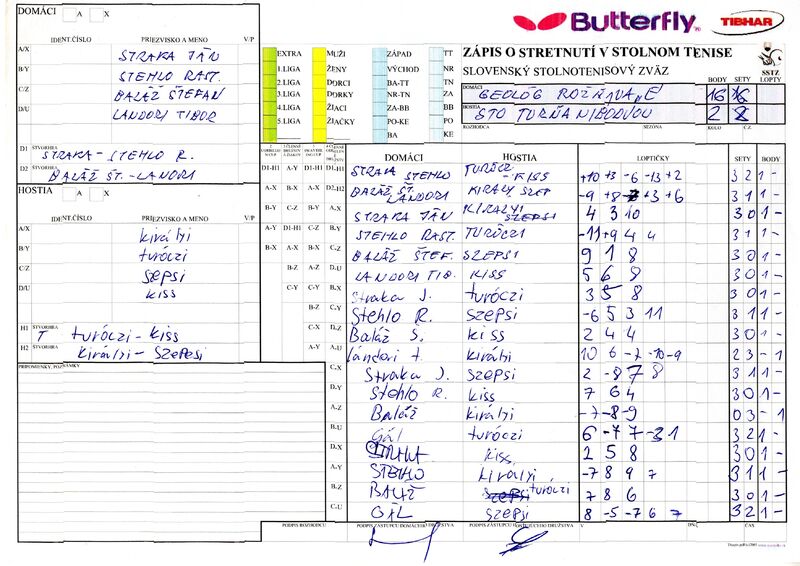 Butterfly
TIBHAR
ZÁPIS O STRETNUTÍ V STOLNOM TENISE
SLOVENSKÝ STOLNOTENISOVÝ ZVÄZ
SSTZ
BODY SETY LOPTY
DOMÁCI
GEOLÓG ROŽŇAVA „E“ 16
HOSTIA
STO TURŇA 2 8
ROZHODCA SEZÓNA KOLO Č.Z.
DOMÁCI A X
IDENT.ČÍSLO PRIEZVISKO A MENO V/P
A/X STRAKA JÁN
B/Y STEHLO RAST.
C/Z BALÁŽ ŠTEFAN
D/U LANDORI TIBOR
D1 ŠTVORHRA STRAKA - STEHLO R.
D2 ŠTVORHRA BALÁŽ ŠT. - LANDORI
HOSTIA A X
IDENT.ČÍSLO PRIEZVISKO A MENO V/P
A/X királyi
B/Y turóczi
C/Z szepsi
D/U kiss
H1 ŠTVORHRA turóczi - kiss
H2 ŠTVORHRA királyi - szepesi
PRIPOMIENKY, POZNÁMKY
EXTRA MUŽI ZÁPAD TT
1.LIGA ŽENY VÝCHOD NR
2.LIGA DORCI BA-TT TN
3.LIGA DORKY NR-TN ZA
4.LIGA ŽIACI ZA-BB BB
5.LIGA ŽIAČKY PO-KE PO
BA KE
DOMÁCI HOSTIA LOPTIČKY SETY BODY
D1-H1 STRAKA STEHLO TURÓCZI - KISS +10 +3 -6 -13 +2 3 2 1 -
D2-H2 BALÁŽ ŠT. LANDORI KIRÁLY SZEP 3 1 1 -
A-X STRAKA JÁN KIRÁLYI 4 3 10 3 0 1 -
B-Y STEHLO RAST. TURÓCZI -11 +9 4 4 3 1 1 -
C-Z BALÁŽ ŠTEF. SZEPSI 9 1 8 3 0 1 -
D-U LANDORI TIB. KISS 5 6 8 3 0 1 -
A-Y Straka J. turóczi 3 5 8 3 0 1 -
B-Z Stehlo R. szepsi -6 5 3 11 3 1 1 -
C-U Baláž Š. kiss 2 4 4 3 0 1 -
D-X lándori t. királyi 10 6 -7 -10 -9 2 3 - 1
A-Z Straka J. szepsi 2 -8 7 8 3 1 1 -
B-U Stehlo R. kiss 7 6 4 3 0 1 -
C-X Baláž királyi -7 -8 -9 0 3 - 1
D-Y Gál turóczi 6 -7 7 -3 1 3 2 1 -
A-U kiss 2 5 8 3 0 1 -
STEHLO királyi -7 8 9 7 3 1 1 -
BALÁŽ turóczi 7 8 6 3 0 1 -
GÁL szepsi 8 -5 -7 6 7 3 2 1 -
PODPIS ROZHODCU PODPIS ZÁSTUPCU DOMÁCEHO DRUŽSTVA PODPIS ZÁSTUPCU HOSŤUJÚCEHO DRUŽSTVA V DŇA